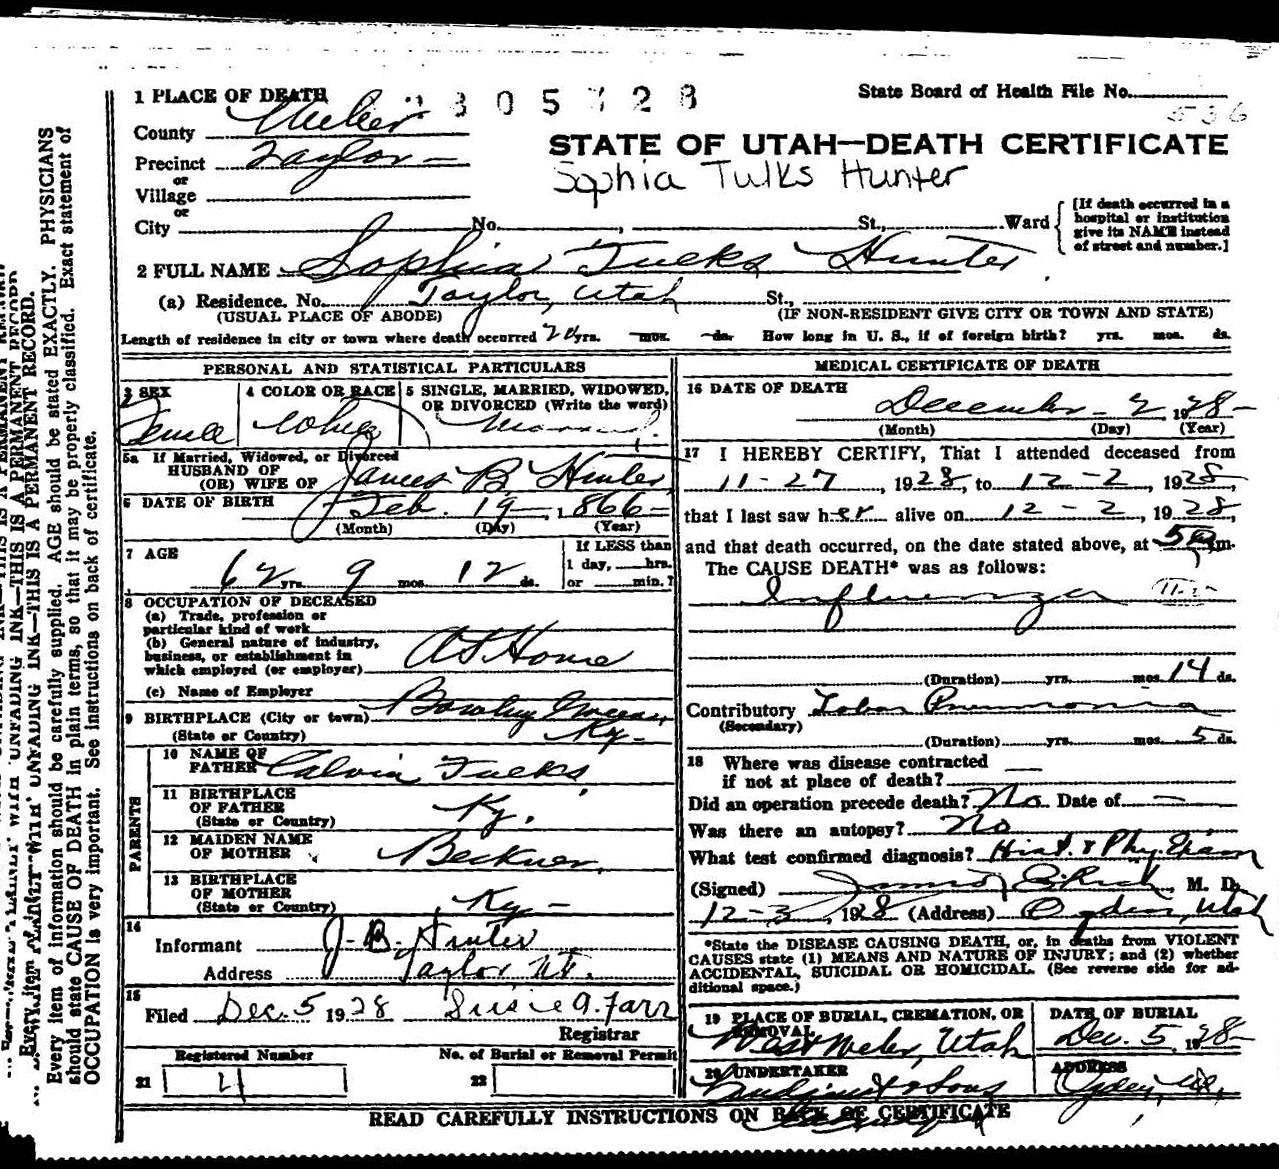 1 PLACE OF DEATH
State Board of Health File No.
536
County Weber
STATE OF UTAH—DEATH CERTIFICATE
Precinct Taylor —
or
Sophia Tulks Hunter
Village
or
City No. , St., Ward
[If death occurred in a hospital or institution give its NAME instead of street and number.]
2 FULL NAME Sophia Tulks Hunter
(a) Residence. No. Taylor, Utah St.,
(USUAL PLACE OF ABODE) (IF NON-RESIDENT GIVE CITY OR TOWN AND STATE)
Length of residence in city or town where death occurred yrs. — mos. — ds. How long in U. S., if of foreign birth? yrs. mos. ds.
PERSONAL AND STATISTICAL PARTICULARS
3 SEX 4 COLOR OR RACE 5 SINGLE, MARRIED, WIDOWED,
OR DIVORCED (Write the word)
Female White Married
5a If Married, Widowed, or Divorced
HUSBAND OF
(OR) WIFE OF James B Hunter
6 DATE OF BIRTH Feb. 19 — 1866 —
(Month) (Day) (Year)
7 AGE If LESS than
1 day, hrs.
62 yrs. 9 mos. 12 ds. or min.?
8 OCCUPATION OF DECEASED
(a) Trade, profession or
particular kind of work
(b) General nature of industry,
business, or establishment in
which employed (or employer) At Home
(c) Name of Employer
9 BIRTHPLACE (City or town) Bowling Green,
(State or Country) Ky —
PARENTS
10 NAME OF
FATHER Calvin Tulks
11 BIRTHPLACE
OF FATHER Ky.
(State or Country)
12 MAIDEN NAME
OF MOTHER Beckner
13 BIRTHPLACE
OF MOTHER
(State or Country) Ky —
14
Informant J. B. Hunter
Address Taylor Ut.
15
Filed Dec. 5 1928 Susie A. Farr
Registrar
Registered Number No. of Burial or Removal Permit
21 22
MEDICAL CERTIFICATE OF DEATH
16 DATE OF DEATH
December — 2, 1928 —
(Month) (Day) (Year)
17 I HEREBY CERTIFY, That I attended deceased from
11-27, 1928, to 12-2, 1928,
that I last saw her alive on 12-2, 1928,
and that death occurred, on the date stated above, at 5 a m.
The CAUSE DEATH* was as follows:
Influenza
(Duration) yrs. mos. 14 ds.
Contributory Lobar Pneumonia
(Secondary)
(Duration) yrs. mos. 5 ds.
18 Where was disease contracted —
if not at place of death?
Did an operation precede death? No Date of —
Was there an autopsy? No
What test confirmed diagnosis? Hist. & Phy. Exam
(Signed) M. D.
12-3, 1928 (Address) Ogden, Utah
*State the DISEASE CAUSING DEATH, or, in deaths from VIOLENT
CAUSES state (1) MEANS AND NATURE OF INJURY; and (2) whether
ACCIDENTAL, SUICIDAL OR HOMICIDAL. (See reverse side for ad-
ditional space.)
19 PLACE OF BURIAL, CREMATION, OR
REMOVAL
West Weber, Utah
DATE OF BURIAL
Dec. 5, 1928 —
20 UNDERTAKER
& Sons
ADDRESS
Ogden, Ut.
READ CAREFULLY INSTRUCTIONS ON BACK OF CERTIFICATE
UNFADING INK—THIS IS A PERMANENT RECORD.
Every item of information should be carefully supplied. AGE should be stated EXACTLY. PHYSICIANS
should state CAUSE OF DEATH in plain terms, so that it may be properly classified. Exact statement of
OCCUPATION is very important. See instructions on back of certificate.